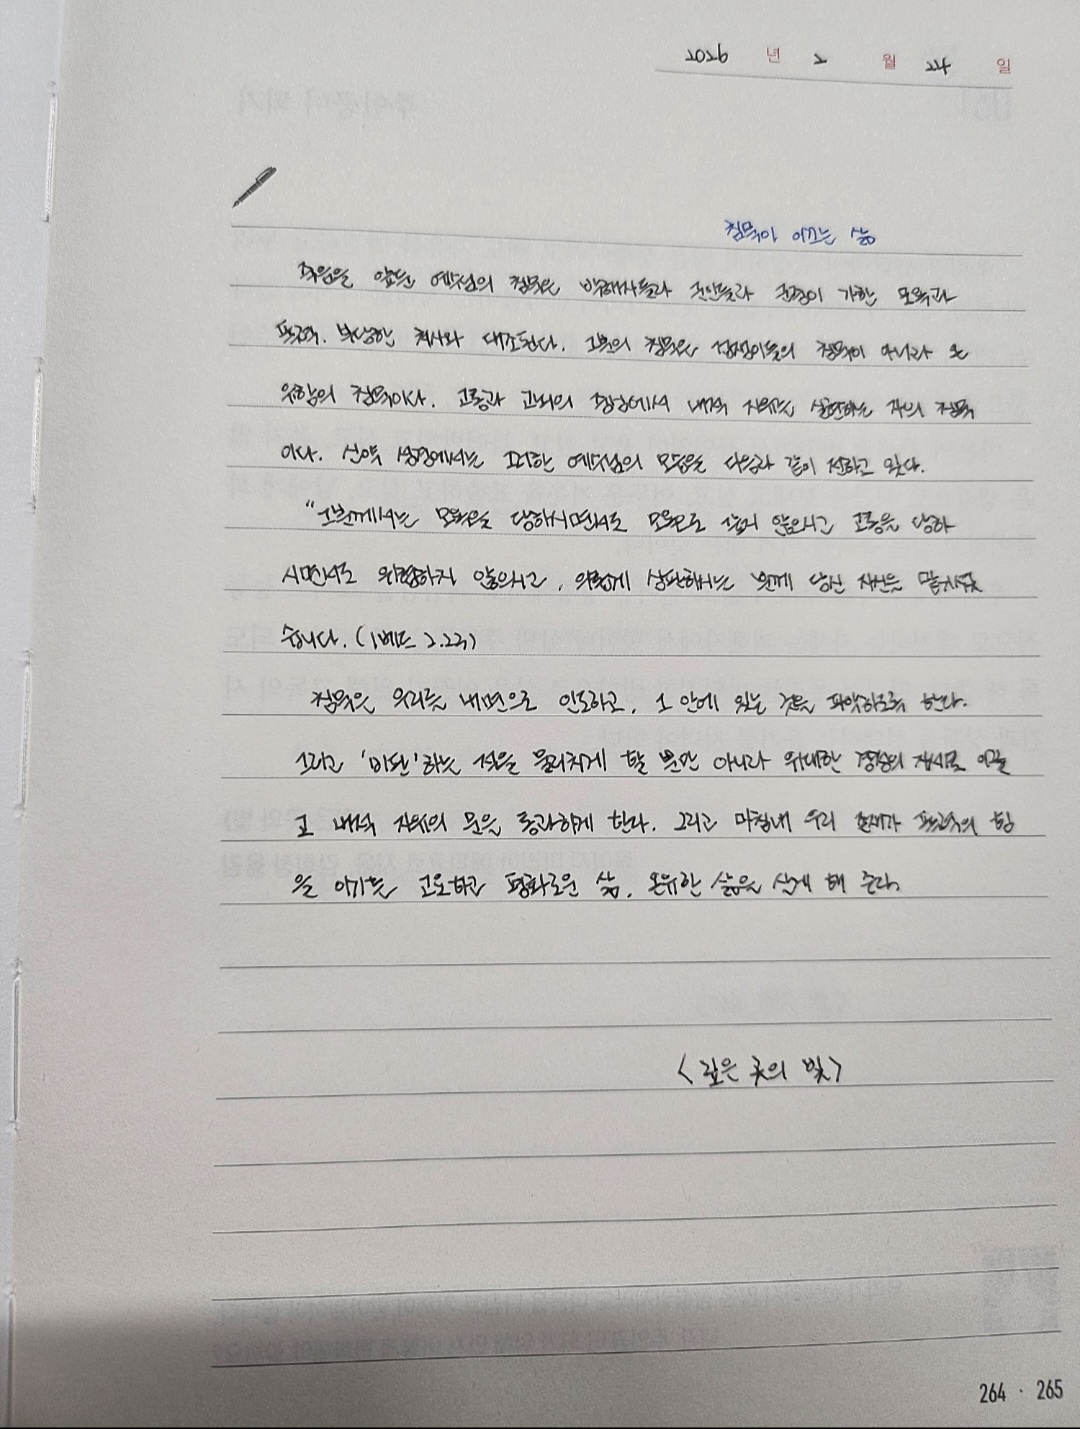 2026 년 2 월 24 일
침묵이 이끄는 삶
죽음을 앞둔 예수님의 침묵은 박해자들과 군인들과 군중이 가한 모욕과
폭력, 부당한 처사와 대조된다. 그분의 침묵은 겁쟁이들의 침묵이 아니라 온
유함의 침묵이다. 고통과 고뇌의 현장에서 내적 자유를 실현하는 자의 침묵
이다. 신약 성경에서는 그러한 예수님의 모습을 다음과 같이 전하고 있다.
"그분께서는 모욕을 당하시면서도 모욕으로 갚지 않으시고 고통을 당하
시면서도 위협하지 않으시고, 의롭게 심판하시는 분께 당신 자신을 맡기셨
습니다. (1베드 2.23)
침묵은 우리를 내면으로 인도하고, 그 안에 있는 것을 파악하도록 한다.
그리고 '미단'하는 적을 물리치게 할 뿐만 아니라 위대한 경청의 자세로 이끌
고 내적 자유의 문을 통과하게 한다. 그리고 마침내 우리 존재가 폭력의 힘
을 이기는 고요하고 평화로운 삶, 온유한 삶을 살게 해 준다.
<깊은 곳의 빛>
264 · 265